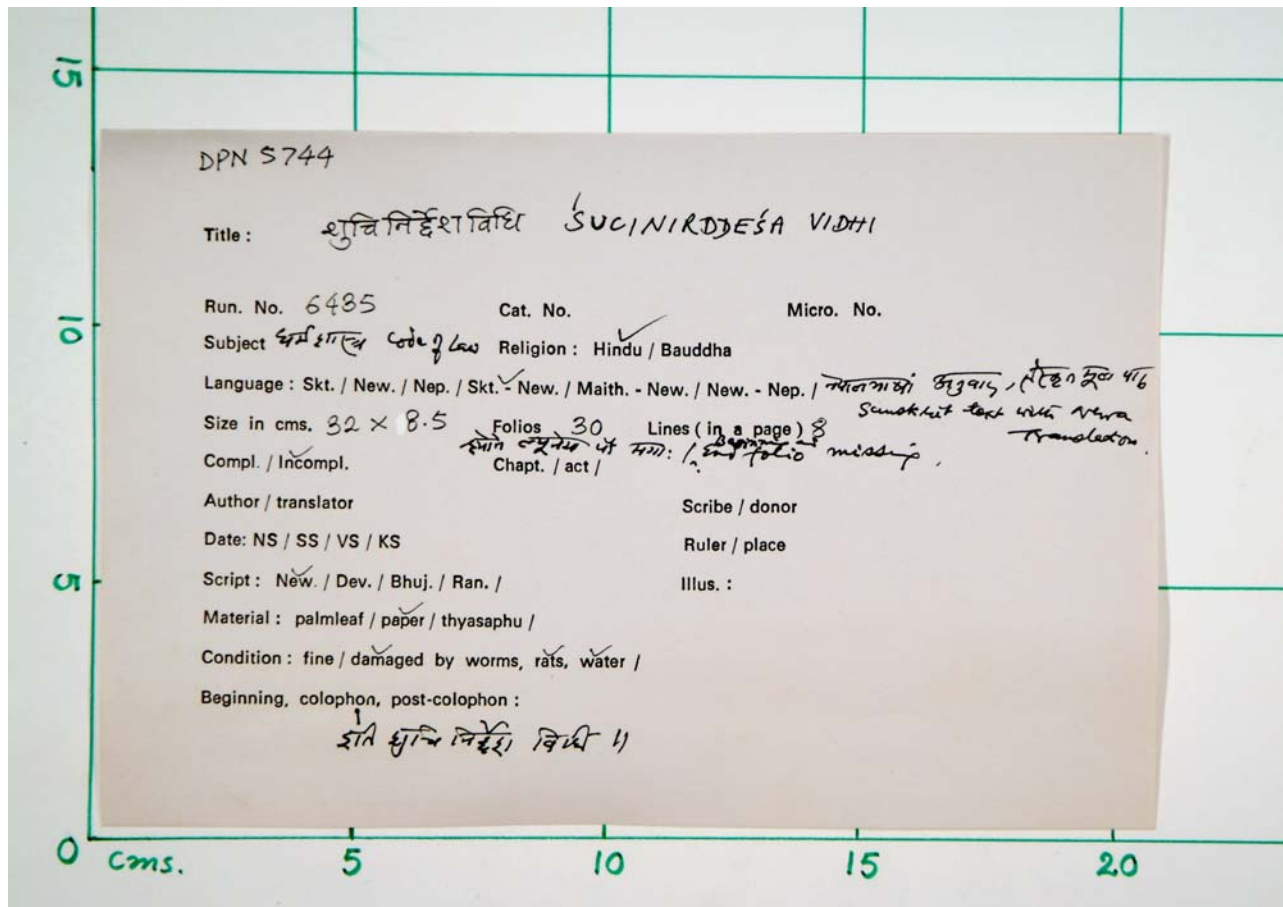 15
DPN 5744
Title : शुचिनिर्द्देशविधि ŚUCINIRDDEŚA VIDHI
10
Run. No. 6435 Cat. No. Micro. No.
Subject धर्मशास्त्र Code of Law Religion : Hindu / Bauddha
Language : Skt. / New. / Nep. / Skt. - New. / Maith. - New. / New. - Nep. / अनुवाद,
Sanskrit text with Newa
Translation.
Size in cms. 32 × 8.5 Folios 30 Lines ( in a page ) 8
Beginning and
End folio missing.
Compl. / Incompl. Chapt. / act /
Author / translator Scribe / donor
Date: NS / SS / VS / KS Ruler / place
5
Script : New. / Dev. / Bhuj. / Ran. / Illus. :
Material : palmleaf / paper / thyasaphu /
Condition : fine / damaged by worms, rats, water /
Beginning, colophon, post-colophon :
इति शुचि निर्द्देश विधि ॥
0 cms. 5 10 15 20